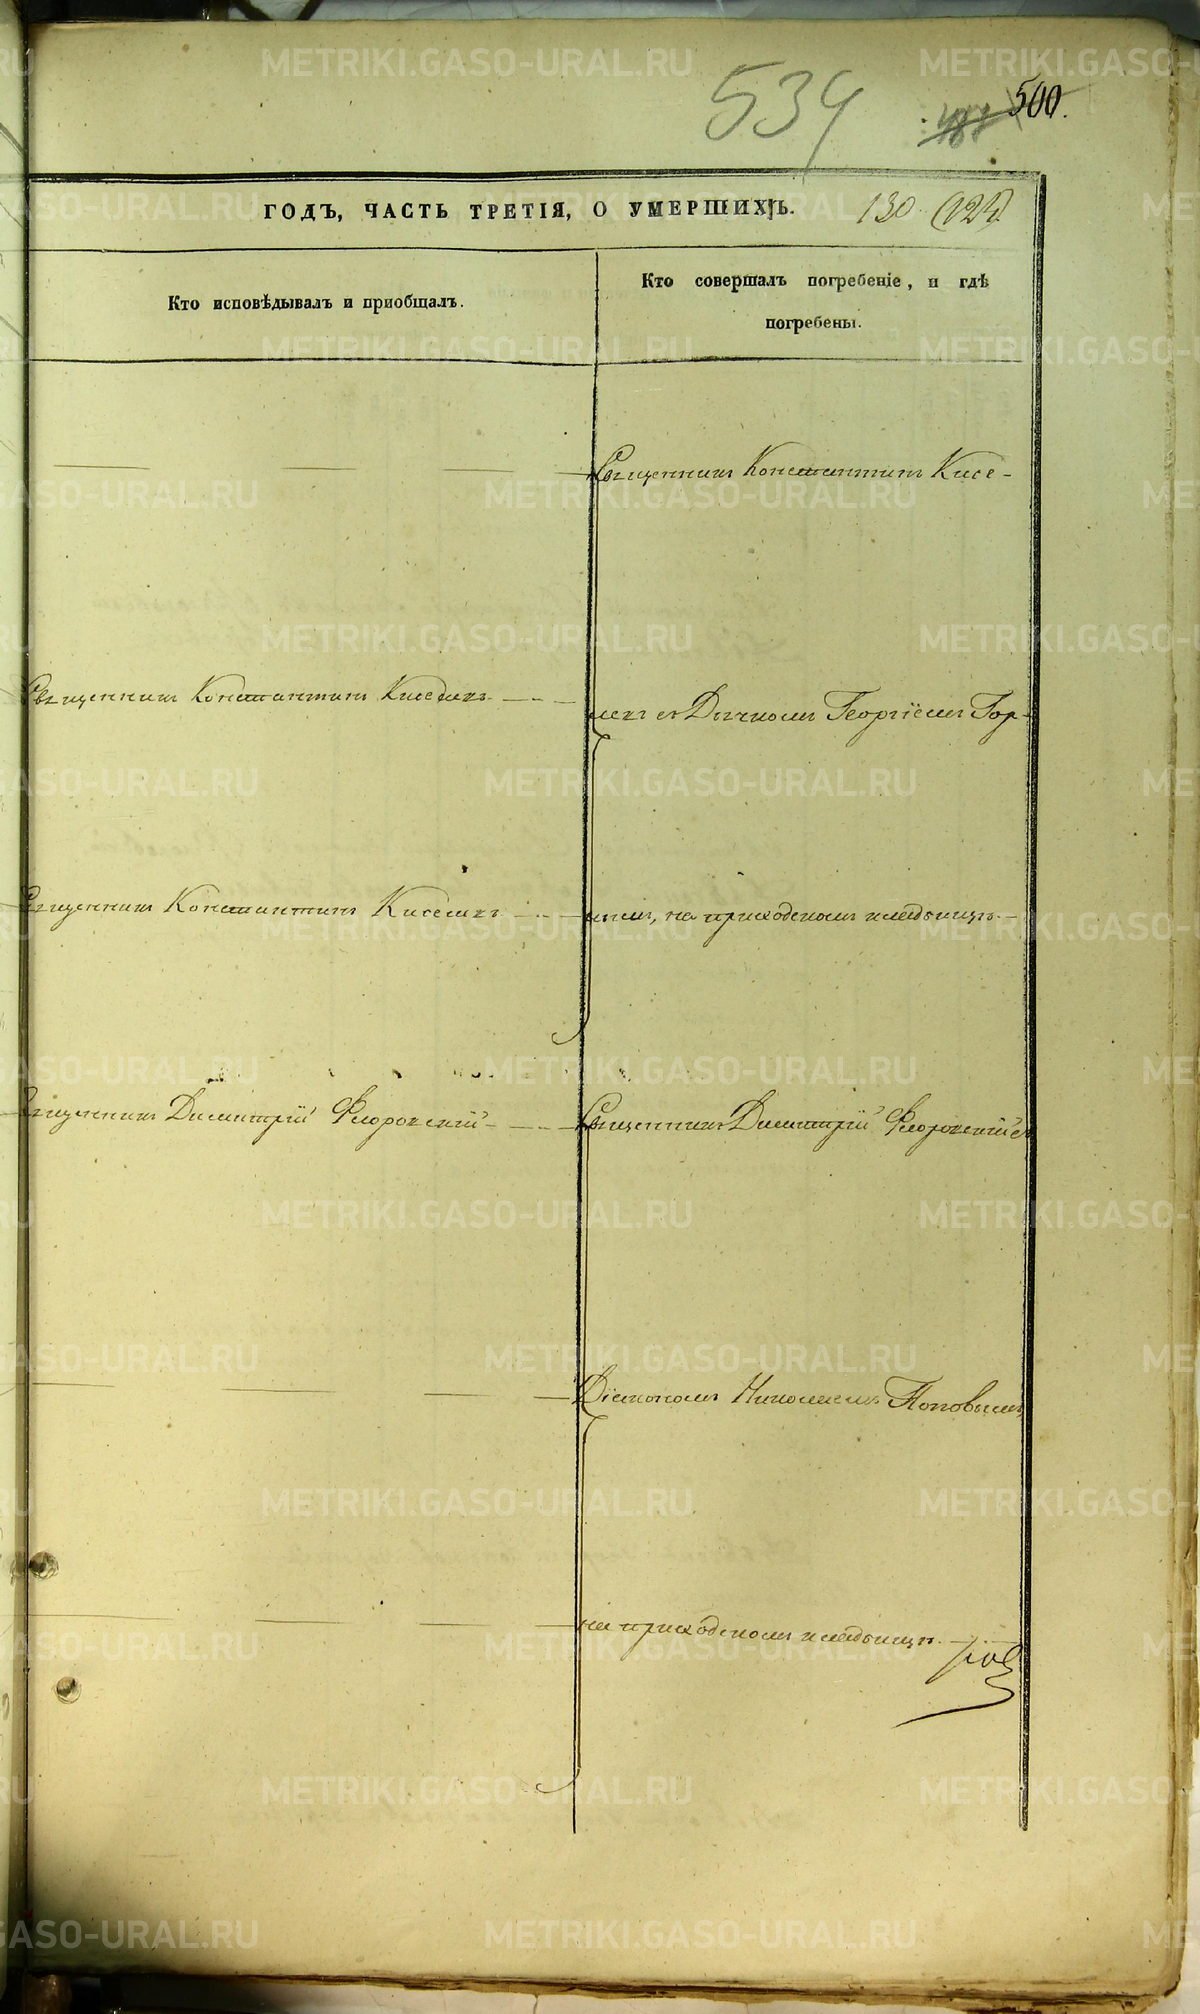 534
500.
ГОДЪ, ЧАСТЬ ТРЕТІЯ, О УМЕРШИХЪ. 130 (124)
Кто исповѣдывалъ и пріобщалъ.
Кто совершалъ погребеніе, и гдѣ
погребены.
Священникъ Константинъ Кисе-
Священникъ Константинъ Киселевъ
левъ съ Дьячкомъ Георгіемъ Гор-
Священникъ Константинъ Киселевъ
нымъ, на приходскомъ кладбищѣ.
Священникъ Димитрій Флоровскій
Священникъ Димитрій Флоровскій съ
Діакономъ Николаемъ Поповымъ,
на приходскомъ кладбищѣ.
METRIKI.GASO-URAL.RU